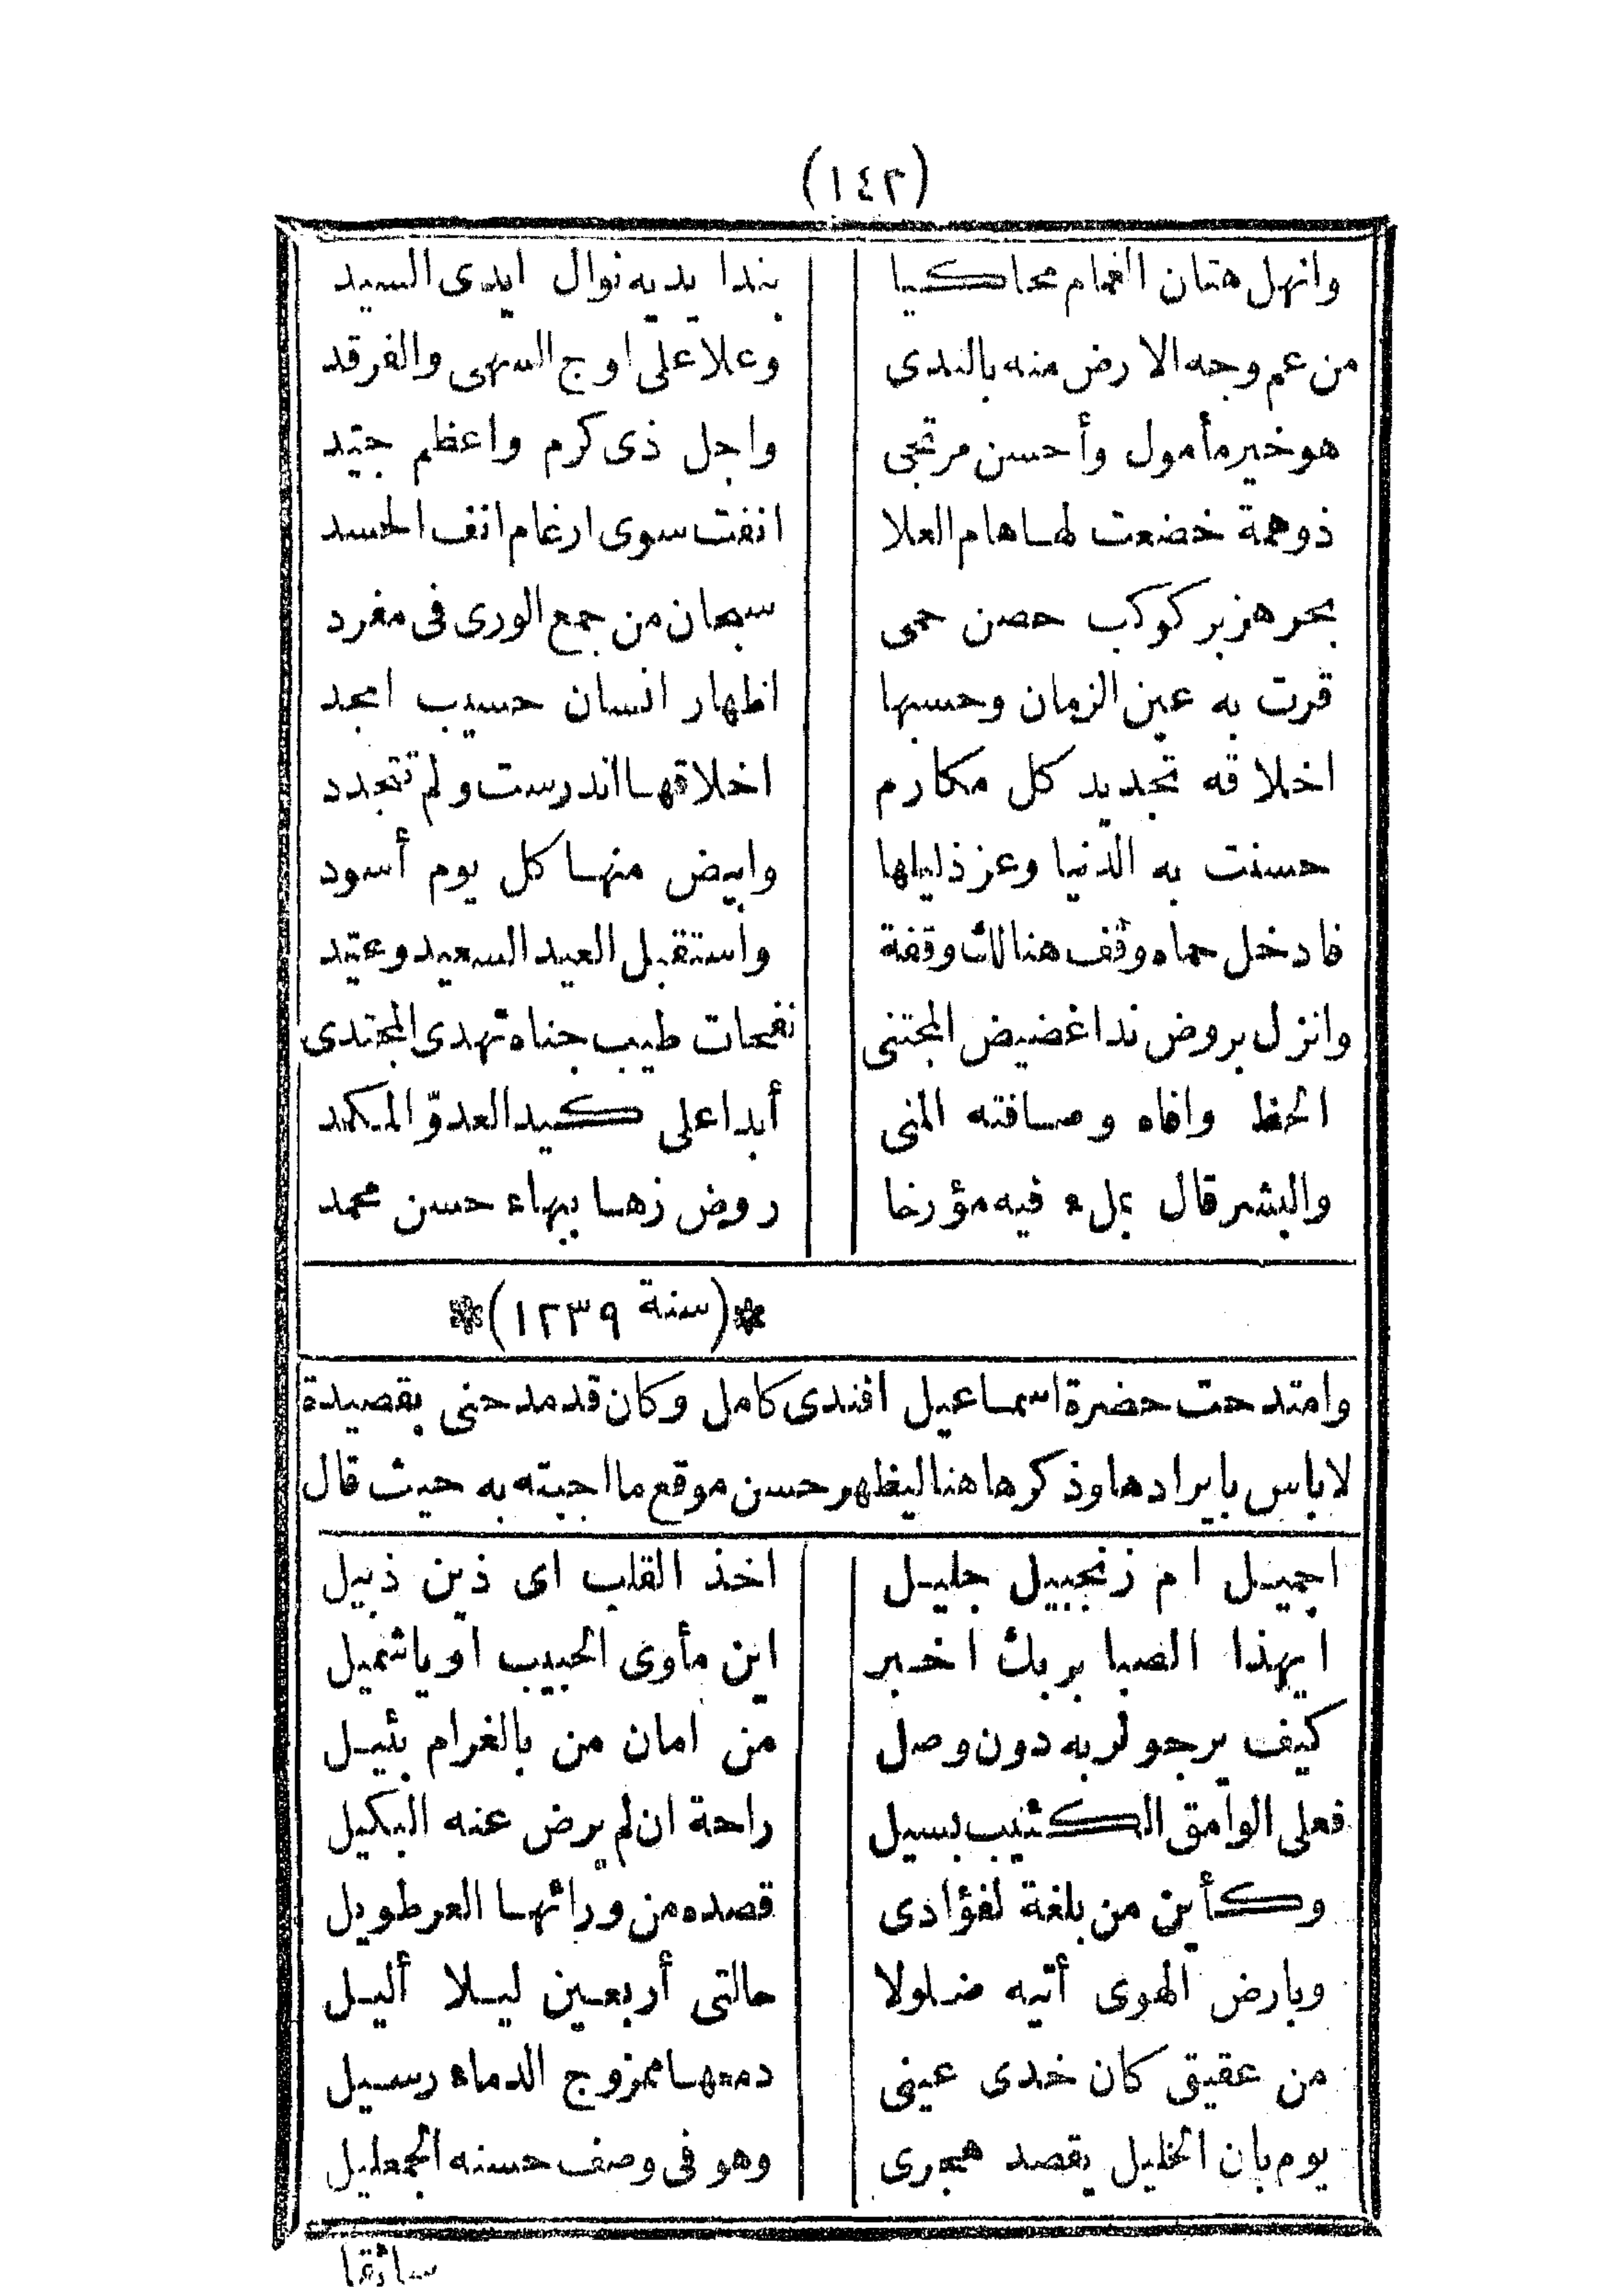 (١٤٢)
وانهل هتان الغمام محاكيا بندا يديه نوال ايدى السيد
من عم وجه الارض منه بالندى وعلا على اوج السهى والفرقد
هو خير مأمول وأحسن مرتجى واجل ذى كرم واعظم جيد
ذو همة خضعت لها هام العلا انفت سوى ارغام انف الحسد
بحر هزبر كوكب حصن حمى سبحان من جمع الورى فى مفرد
قرت به عين الزمان وحسبها اظهار انسان حسيب امجد
اخلاقه تجديد كل مكارم اخلاقها اندرست ولم تتجدد
حسنت به الدنيا وعز ذليلها وابيض منها كل يوم أسود
فادخل حماه وقف هنالك وقفة واستقبل العيد السعيد وعيد
وانزل بروض ندا غضيض المجتنى نفحات طيب جناه تهدى المجتدى
الحظ وافاه وصافته المنى أبدا على كيد العدوّ المكمد
والبشر قال بملء فيه مؤرخا روض زها ببهاء حسن محمد
*(سنة ١٢٣٩)*
وامتدحت حضرة اسماعيل افندى كامل وكان قد مدحنى بقصيدة
لاباس بايرادها وذكرها هنا ليظهر حسن موقع ما اجبته به حيث قال
اجميل ام زنجبيل جليل اخذ القلب اى ذين ذبيل
ايهذا الصبا بربك اخبر اين مأوى الحبيب او ياشميل
كيف يرجو لربه دون وصل من امان من بالغرام بئيل
فعلى الوامق الكئيب بسيل راحة ان لم يرض عنه البكيل
وكأين من بلغة لفؤادى قصده من ورائها العرطويل
وبارض الهوى أتيه ضلولا حالتى أربعين ليلا أليل
من عقيق كان خدى عينى دمعها ممزوج الدماء رسيل
يوم بان الخليل يقصد هجرى وهو فى وصف حسنه الجمعليل
سائقا